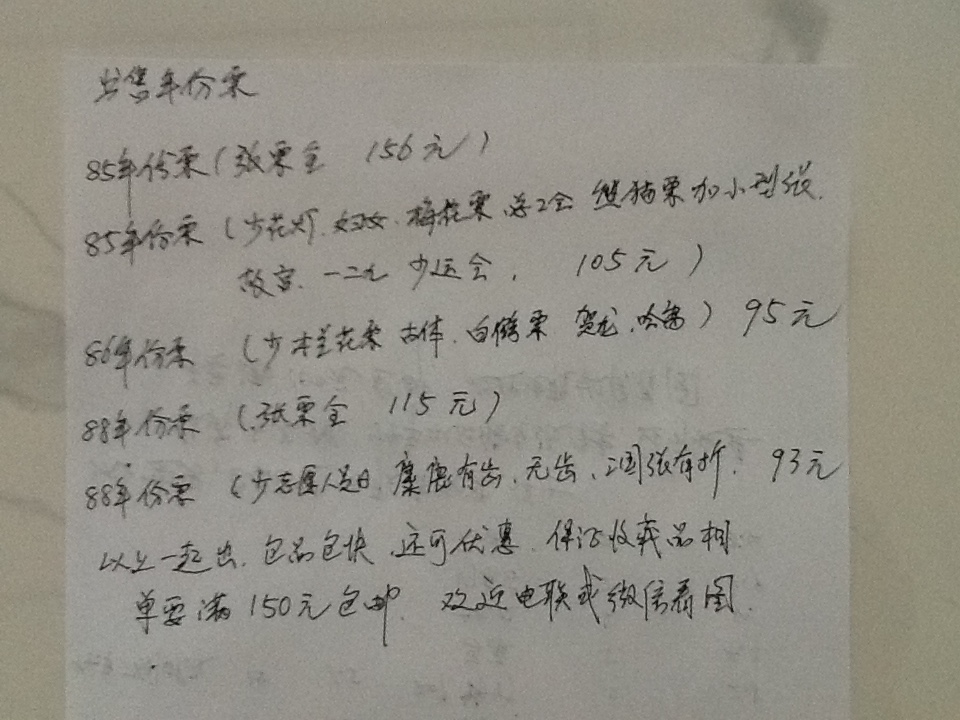 出售年份票
85年份票（张票全 156元）
85年份票（少花灯、妇女、梅花票、总工会 熊猫票加小型张、
故宫、一二九 少运会， 105元）
86年份票 （少木兰花票 古体、白鹤票 贺龙、哈雷） 95元
88年份票 （张票全 115元）
88年份票 （少志愿人员日，麋鹿有齿、无齿、三国张有折， 93元
以上一起出，包品包快，还可优惠，保证收藏品相
单要满150元包邮， 欢迎电联或微信看图。